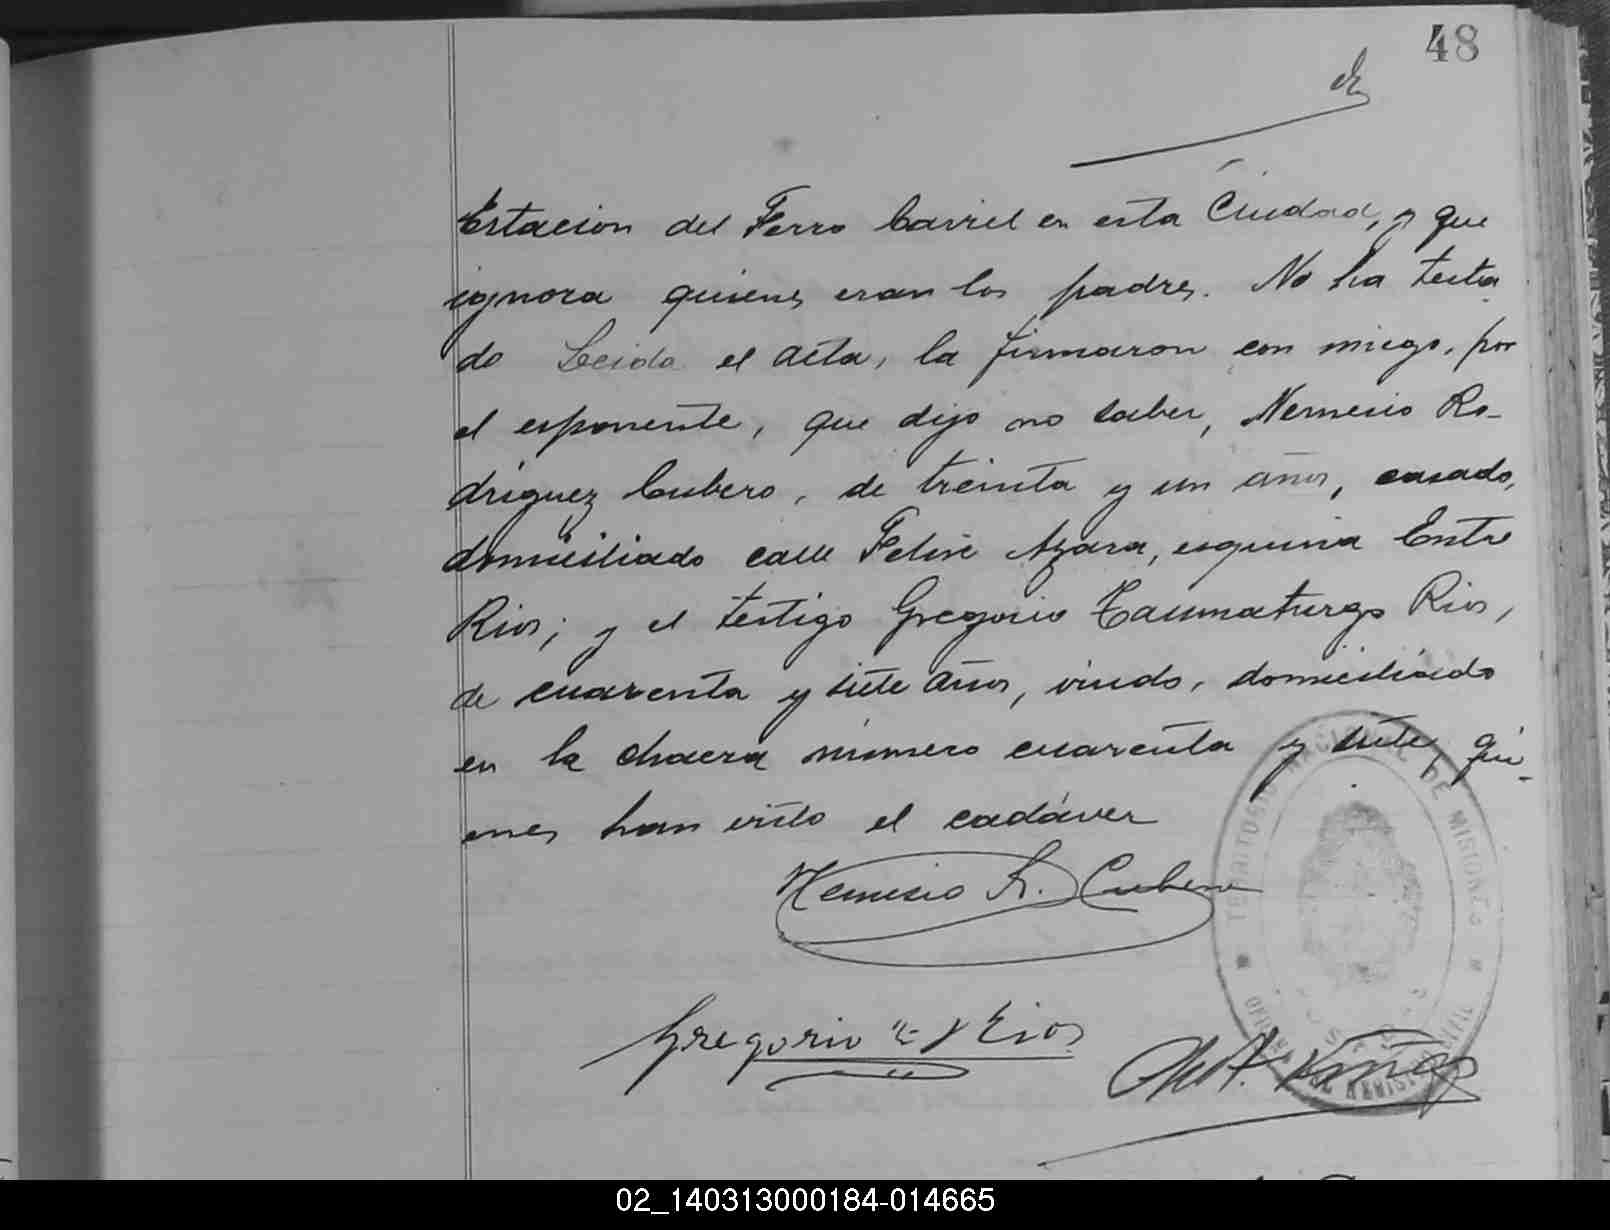 48
Estacion del Ferro Carril en esta Ciudad, y que
ignora quienes eran los padres. No ha testa
do Leida el acta, la firmaron con migo, por
el esponente, que dijo no saber, Nemesio Ro-
driguez Cubero, de treinta y un años, casado,
domiciliado calle Felix Azara, esquina Entre
Rios; y el testigo Gregorio Taumaturgo Rios,
de cuarenta y siete años, viudo, domiciliado
en la chacra número cuarenta y siete, qui-
enes han visto el cadáver
Nemesio R. Cubero
Gregorio T Rios
TERRITORIO NACIONAL DE MISIONES
02_140313000184-014665